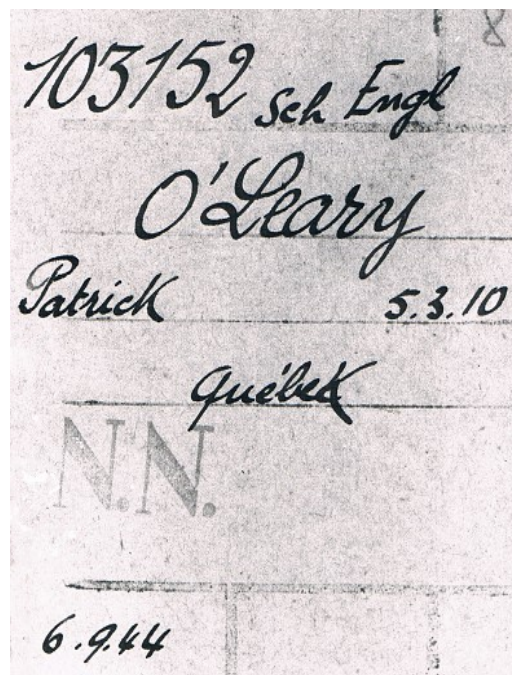 8
103152 Sch Engl
O'Leary
Patrick 5.3.10
Québek
N.N.
6.9.44